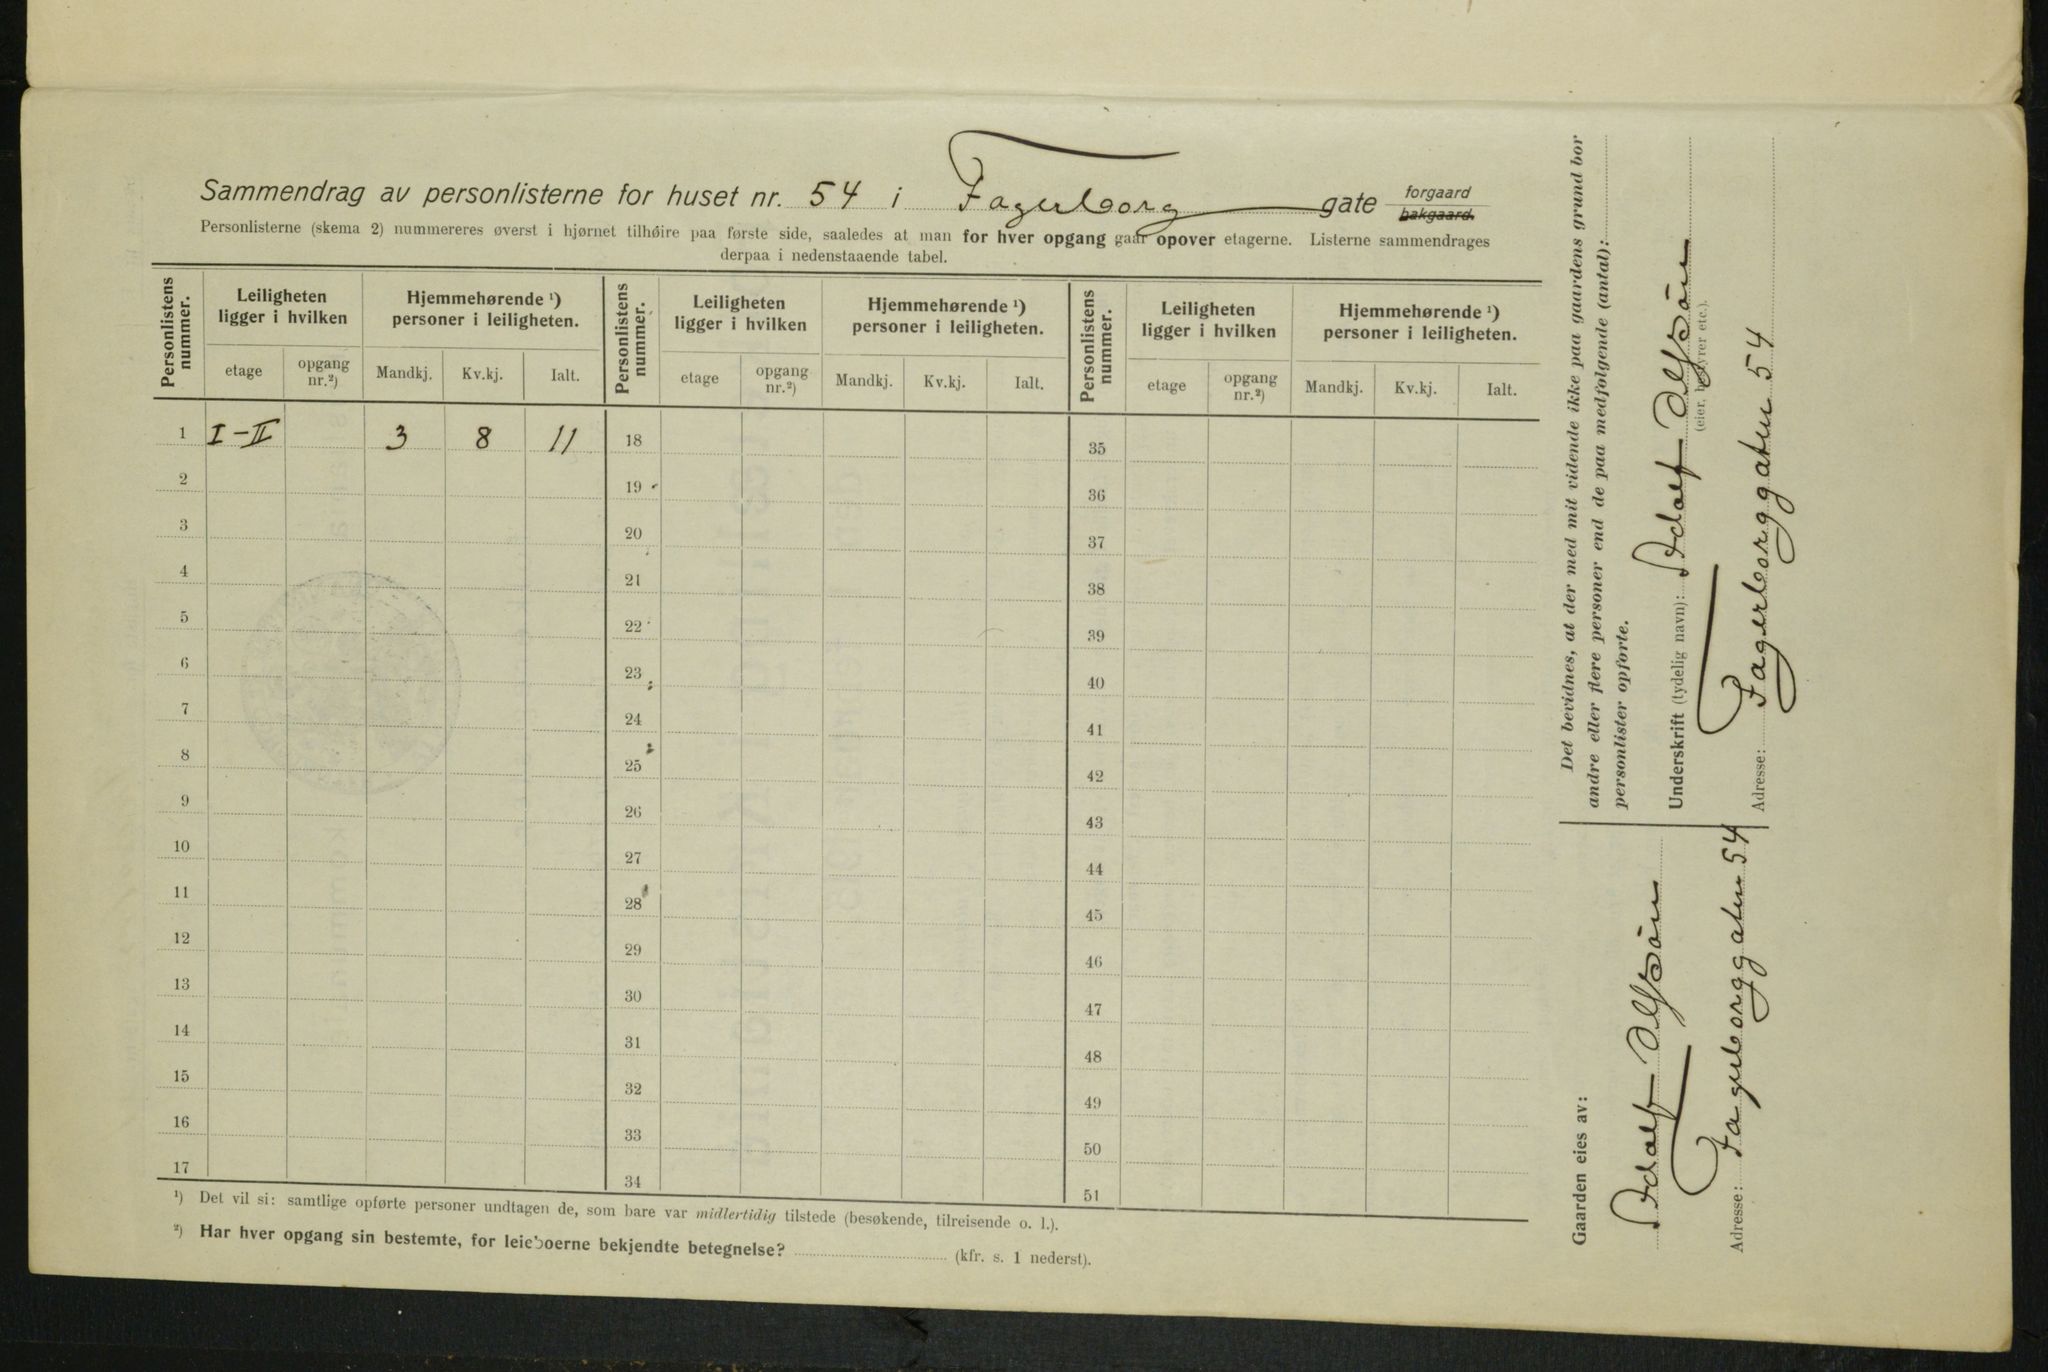 Sammendrag av personlisterne for huset nr. 54 i Fagerborg gate forgaard
bakgaard.
Personlisterne (skema 2) nummereres øverst i hjørnet tilhøire paa første side, saaledes at man for hver opgang gaar opover etagerne. Listerne sammendrages
derpaa i nedenstaaende tabel.
Personlistens nummer. Leiligheten ligger i hvilken Hjemmehørende ¹) personer i leiligheten. Personlistens nummer. Leiligheten ligger i hvilken Hjemmehørende ¹) personer i leiligheten. Personlistens nummer. Leiligheten ligger i hvilken Hjemmehørende ¹) personer i leiligheten.
etage opgang nr.²) Mandkj. Kv.kj. Ialt. etage opgang nr.²) Mandkj. Kv.kj. Ialt. etage opgang nr.²) Mandkj. Kv.kj. Ialt.
1 I-II 3 8 11 18 35
2 19 36
3 20 37
4 21 38
5 22 39
6 23 40
7 24 41
8 25 42
9 26 43
10 27 44
11 28 45
12 29 46
13 30 47
14 31 48
15 32 49
16 33 50
17 34 51
¹) Det vil si: samtlige opførte personer undtagen de, som bare var midlertidig tilstede (besøkende, tilreisende o. l.).
²) Har hver opgang sin bestemte, for leieboerne bekjendte betegnelse? (kfr. s. 1 nederst).
Det bevidnes, at der med mit vidende ikke paa gaardens grund bor
andre eller flere personer end de paa medfølgende (antal):
personlister opførte.
Underskrift (tydelig navn): Adolf
(eier, bestyrer etc.).
Adresse: Fagerborggaten 54
Gaarden eies av:
Adolf
Adresse: Fagerborggaten 54